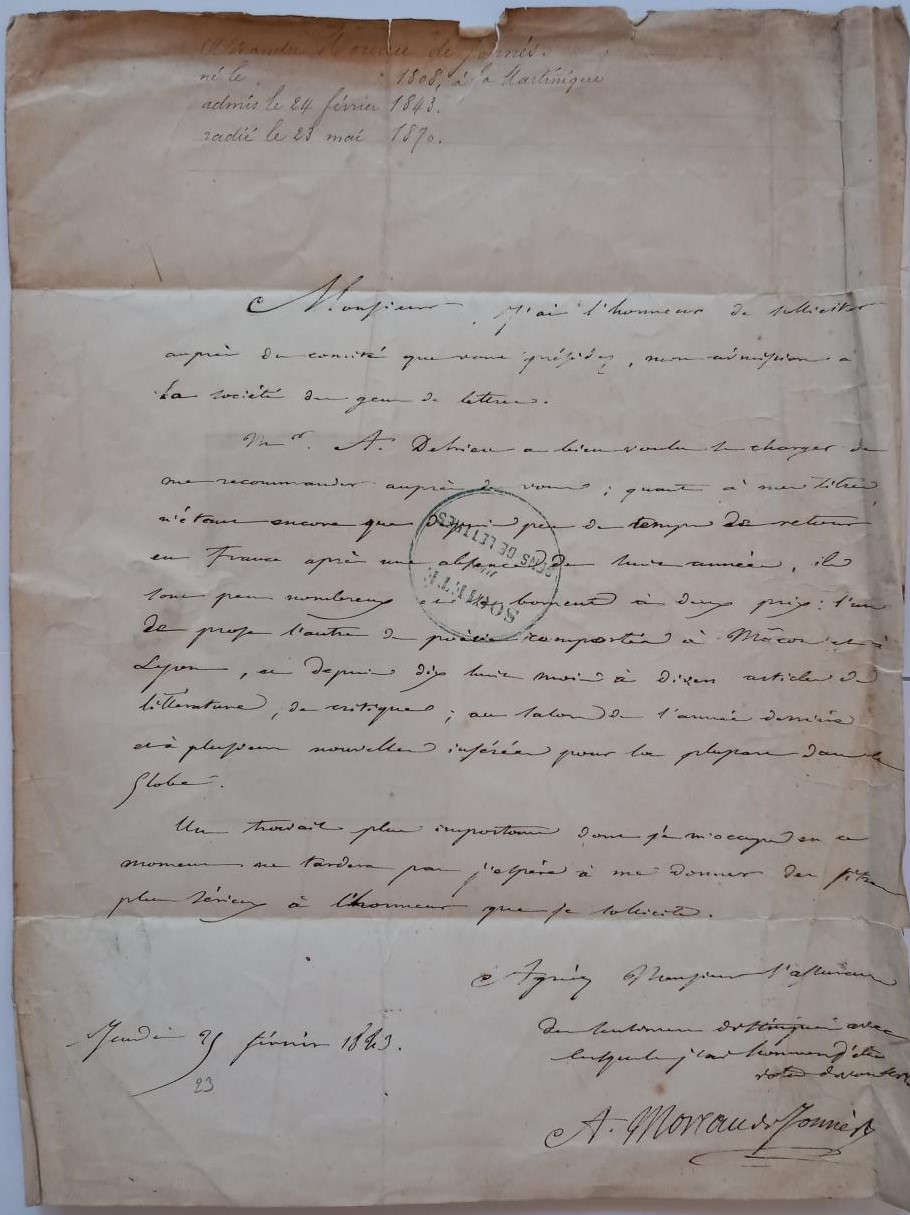 Alexandre Moreau de Jonnès.
né le 1808, à la Martinique
admis le 24 février 1843.
radié le 23 mai 1870.
Monsieur J'ai l'honneur de solliciter
auprès du comité que vous présidez, mon admission à
la société des gens de lettres.
Mr. A. a bien voulu se charger de
me recommander auprès de vous ; quant à mes titres
n'étant encore que depuis peu de temps de retour
en France après une absence de huit années, ils
sont peu nombreux et se bornent à deux prix : l'un
de prose l'autre de poésie remportés à Mâcon et à
Lyon, et depuis dix huit mois à divers articles de
littérature, de critique ; au salon de l'année dernière
et à plusieurs nouvelles insérées pour la plupart dans le
Globe.
Un travail plus important dont je m'occupe en ce
moment ne tardera pas j'espère à me donner des titres
plus sérieux à l'honneur que je sollicite.
Agréez Monsieur l'assurance
des sentimens distingués avec
lesquels j'ai l'honneur d'être
votre
Jeudi février 1843.
23
A. Moreau de Jonnès
SOCIÉTÉ
DES
GENS DE LETTRES